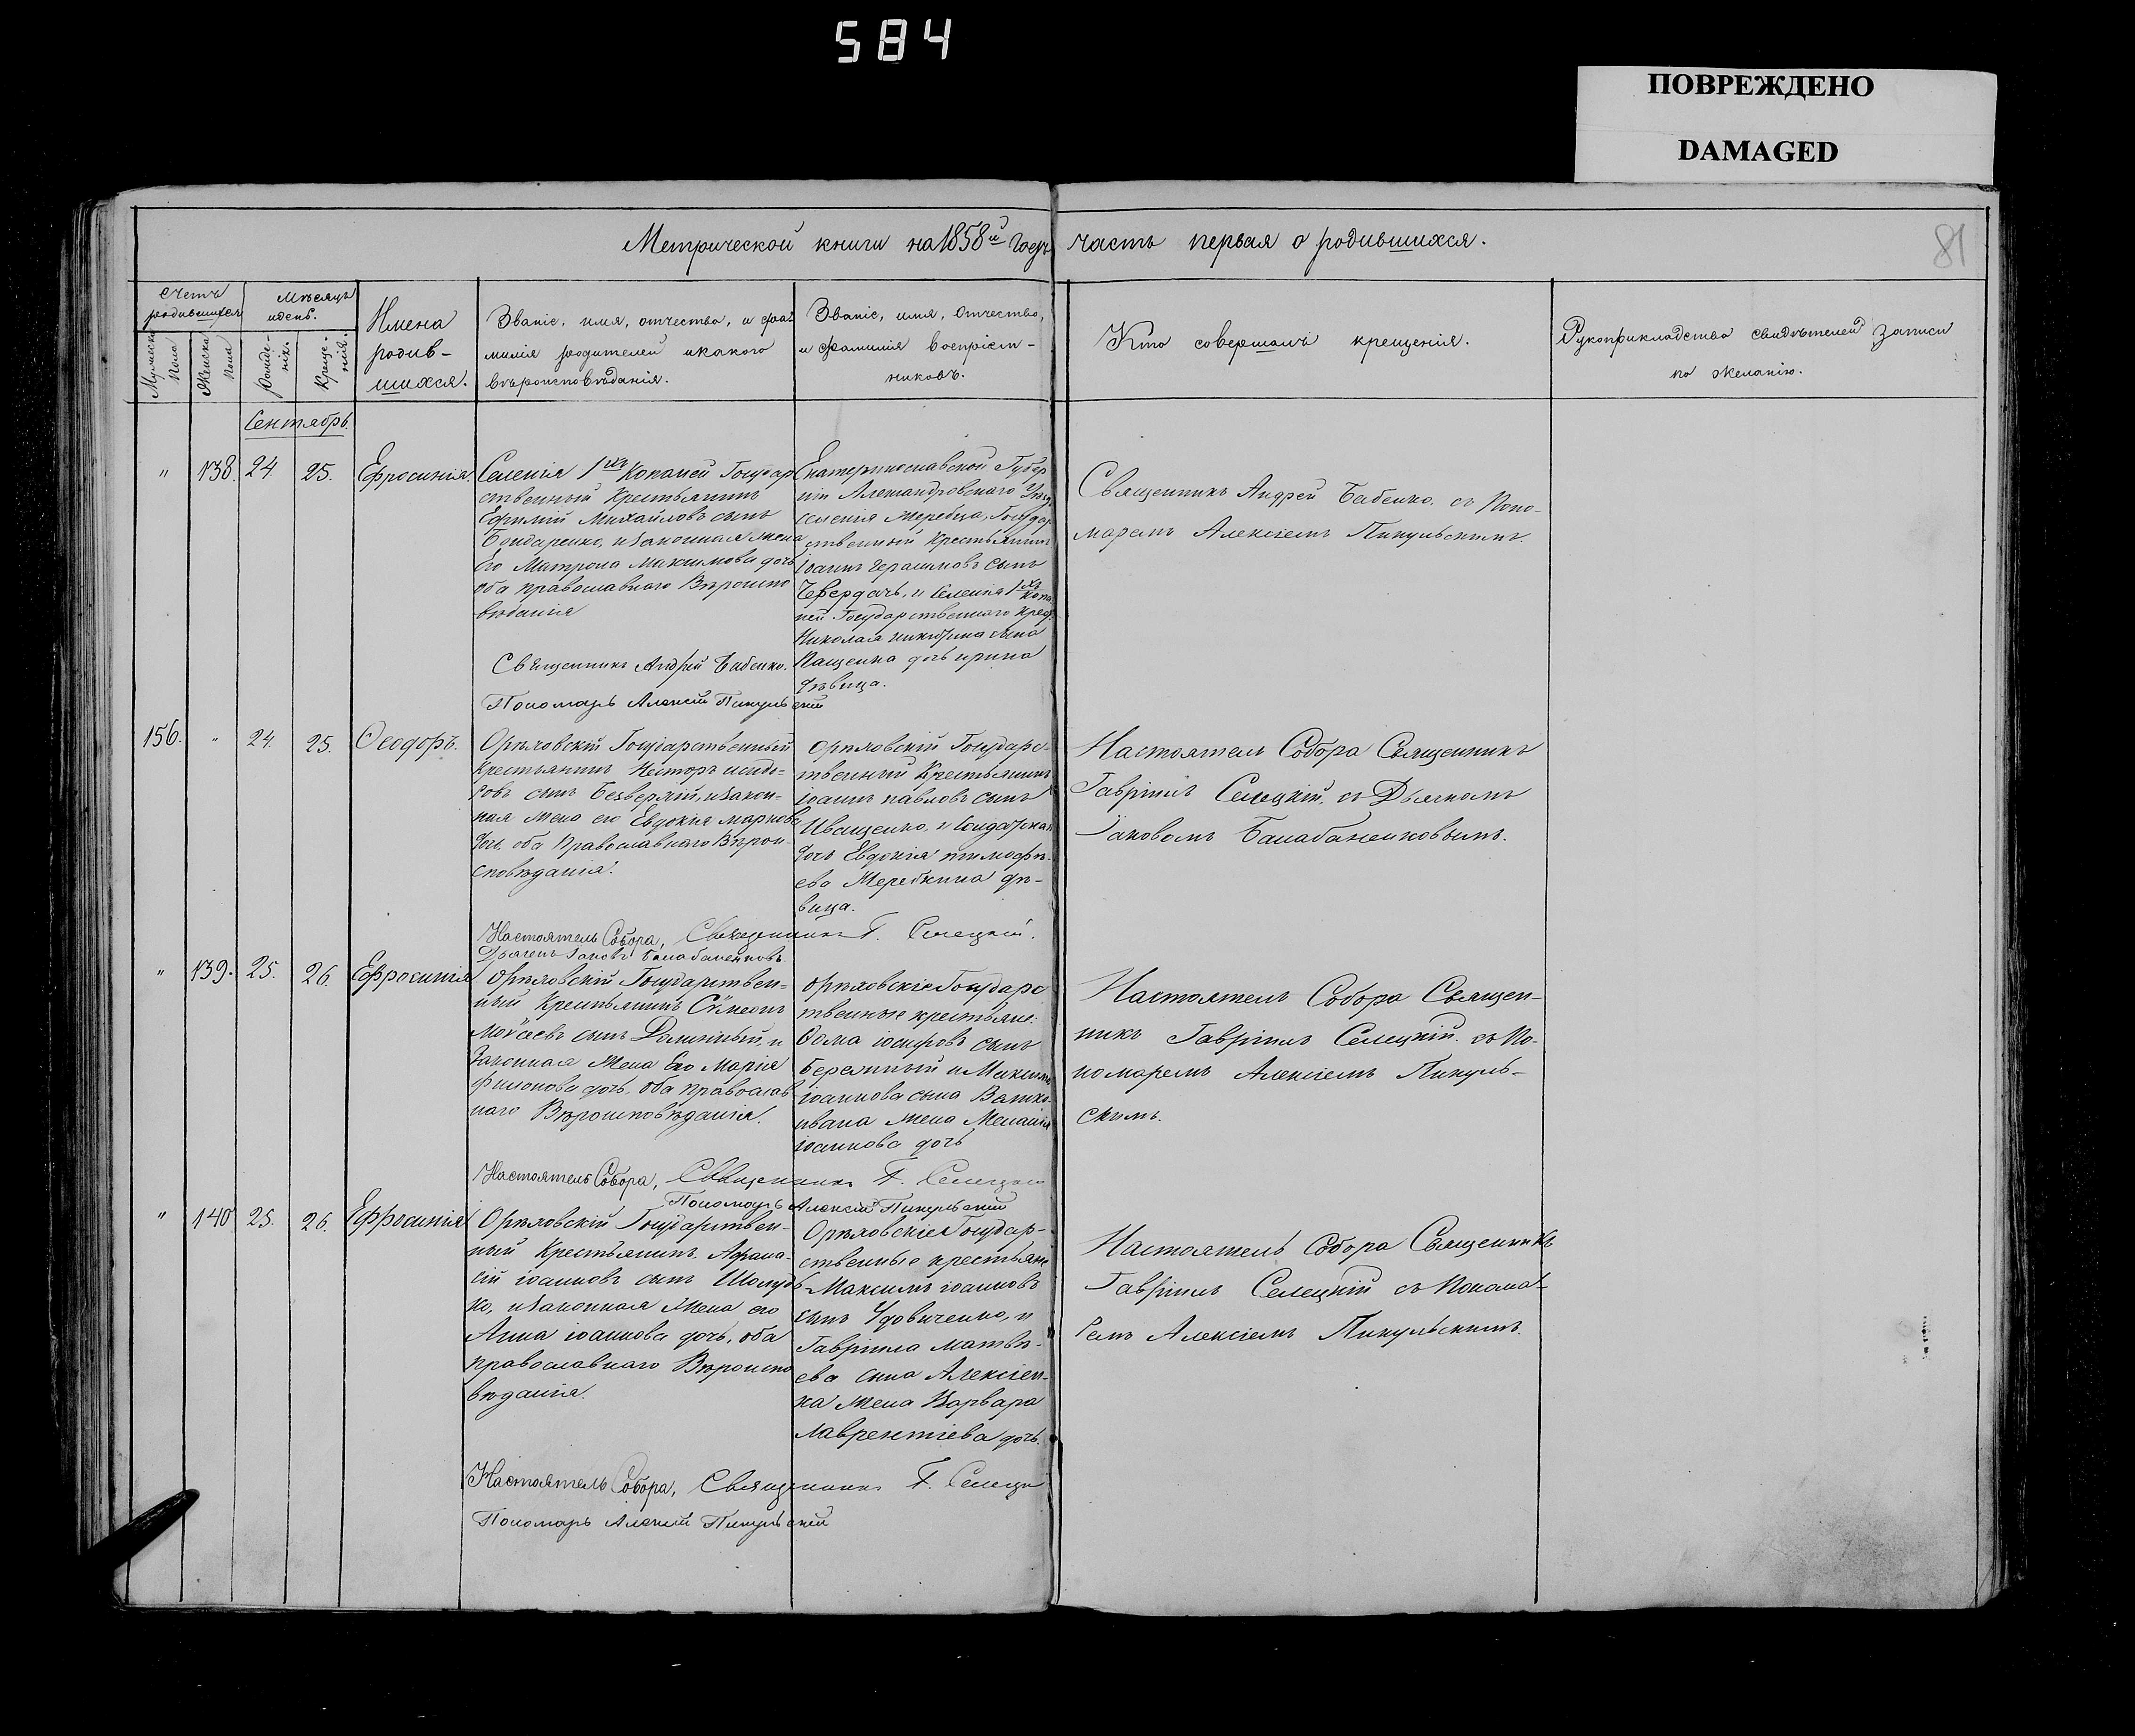 584
ПОВРЕЖДЕНО
DAMAGED
81
Метрической книги на 1858й годъ часть первая о родившихся.
Счетъ родившихся
Мужеска пола
Женска пола
Мѣсяцъ и день.
Рожденiя.
Крещенiя.
Имена
родив-
шихся.
Званiе, имя, отчество, и фа-
милiя родителей и какого
вѣроисповѣданiя.
Званiе, имя, отчество,
и фамилiя воспрiем-
никовъ.
Кто совершалъ крещенiя.
Рукоприкладство свидѣтелей записи
по желанiю.
Сентябрь.
" 138. 24. 25. Ефросинiя.
Селенiя 1хъ Копаней Государ
ственный Крестьянинъ
Ефимiй Михайловъ сынъ
Бондаренко, и законная жена
Его Матрона Максимова дочь
оба православнаго Вѣроиспо
вѣданiя
Священникъ Андрей Бабенко.
Пономарь Алексiй Пикульскiй
Екатеринославской Губер
нiи Александровскаго Уѣзд
селенiя Жеребца, Государ
ственный Крестьянинъ
Iоаннъ Герасимовъ сынъ
и Селенiя 1хъ Копа
ней Государственнаго Крест
Николая сына
Пащенка дочь Ирина
дѣвица.
Священникъ Андрей Бабенко. съ Поно-
маремъ Алексiемъ Пикульскимъ.
156. " 24. 25. Ѳеодоръ.
Орѣховскiй Государственный
Крестьянинъ Несторъ Исидо-
ровъ сынъ Безверхiй, и закон-
ная жена его Евдокiя Маркова
дочь, оба Православнаго Вѣрои-
сповѣданiя.
Настоятель Собора, Священникъ Г. Селецкiй.
Дьячекъ Iаковъ Балабаненковъ.
Орѣховскiй Государс-
твенный Крестьянинъ
Iоаннъ Павловъ сынъ
Иващенко, и
дочь Евдокiя Тимофѣ-
ева Жеребкина дѣ-
вица.
Настоятель Собора Священникъ
Гаврiилъ Селецкiй, съ Дьячкомъ
Iаковомъ Балабаненковымъ.
" 139. 25. 26. Ефросинiя
Орѣховскiй Государствен-
ный Крестьянинъ Сѵмеонъ
Моѵсеевъ сынъ и
Законная Жена Его Марiя
Филонова дочь, оба Православ
наго Вѣроисповѣданiя.
Настоятель Собора, Священникъ Г. Селецкiй
Пономарь Алексiй Пикульскiй
Орѣховскiе Государс
твенные крестьяне:
Ѳома Iосифовъ сынъ
Бережный и Максима
Iоаннова сына
жена Меланiя
Iоаннова дочь
Настоятель Собора Священ-
никъ Гаврiилъ Селецкiй. съ По-
номаремъ Алексiемъ Пикуль-
скимъ.
" 140 25. 26. Ефросинiя
Орѣховскiй Государствен-
ный Крестьянинъ Афана-
сiй Iоанновъ сынъ Шолудь
ко, и законная Жена его
Анна Iоаннова дочь, оба
православнаго Вѣроиспо
вѣданiя.
Настоятель Собора, Священникъ Г. Селецк
Пономарь Алексiй Пикульскiй
Орѣховскiе Государ-
ственные крестьяне
Максимъ Iоанновъ
сынъ Удовиченко, и
Гаврiила Матвѣ-
ева сына Алексѣен-
ка жена Варвара
Лаврентiева дочь.
Настоятель Собора Священникъ
Гаврiилъ Селецкiй съ Понома-
ремъ Алексiемъ Пикульскимъ.